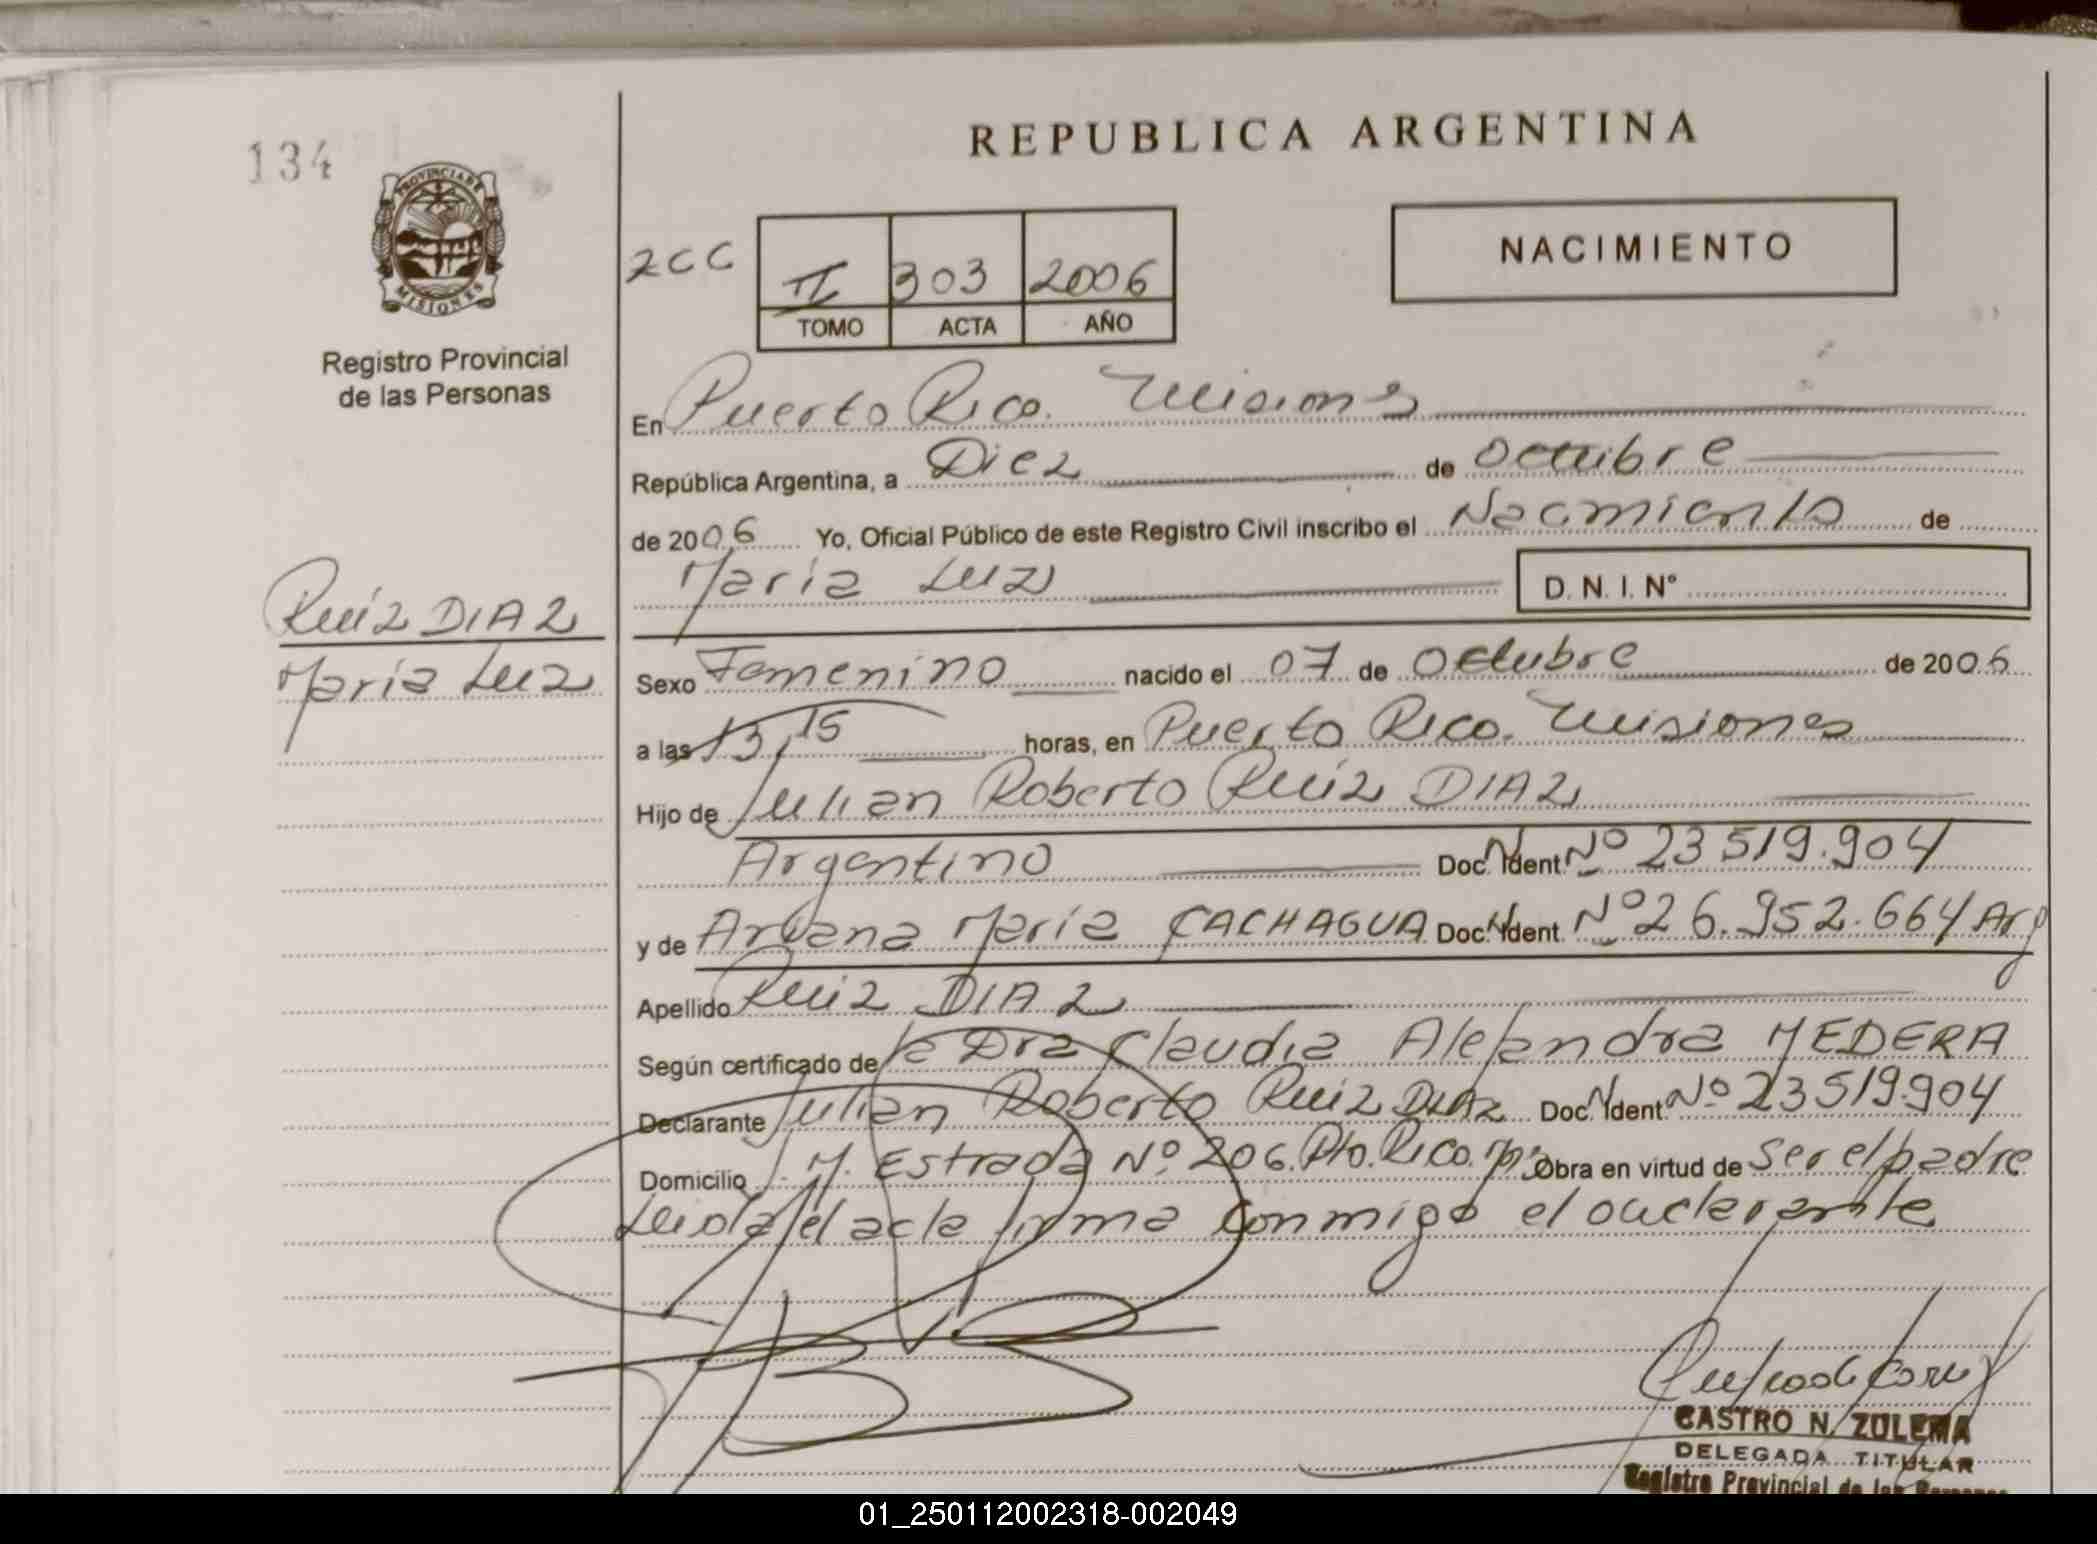 134
PROVINCIA DE
MISIONES
Registro Provincial
de las Personas
REPUBLICA ARGENTINA
2CC
II 303 2006
TOMO ACTA AÑO
NACIMIENTO
En Puerto Rico. Misiones
República Argentina, a Diez de octubre
de 2006 Yo, Oficial Público de este Registro Civil inscribo el Nacimiento de
María Luz D. N. I. N°
Ruíz DIAZ
María Luz
Sexo Femenino nacido el 07 de Octubre de 2006
a las 13,15 horas, en Puerto Rico. Misiones
Hijo de Julian Roberto Ruíz DIAZ
Argentino Doc. Ident. Nº 23519.904
y de Maria CACHAGUA Doc. Ident. Nº 26.952.664 Arg
Apellido Ruiz DIAZ
Según certificado de la Dra Claudia Alejandra MEDERA
Declarante Julian Roberto Ruiz DIAZ Doc. Ident. Nº 23519.904
Domicilio J. M. Estrada Nº 206. Pto. Rico. Obra en virtud de ser el padre
Leida el acta firma conmigo el
CASTRO N. ZULEMA
DELEGADA TITULAR
Registro Provincial de las Personas
01_250112002318-002049